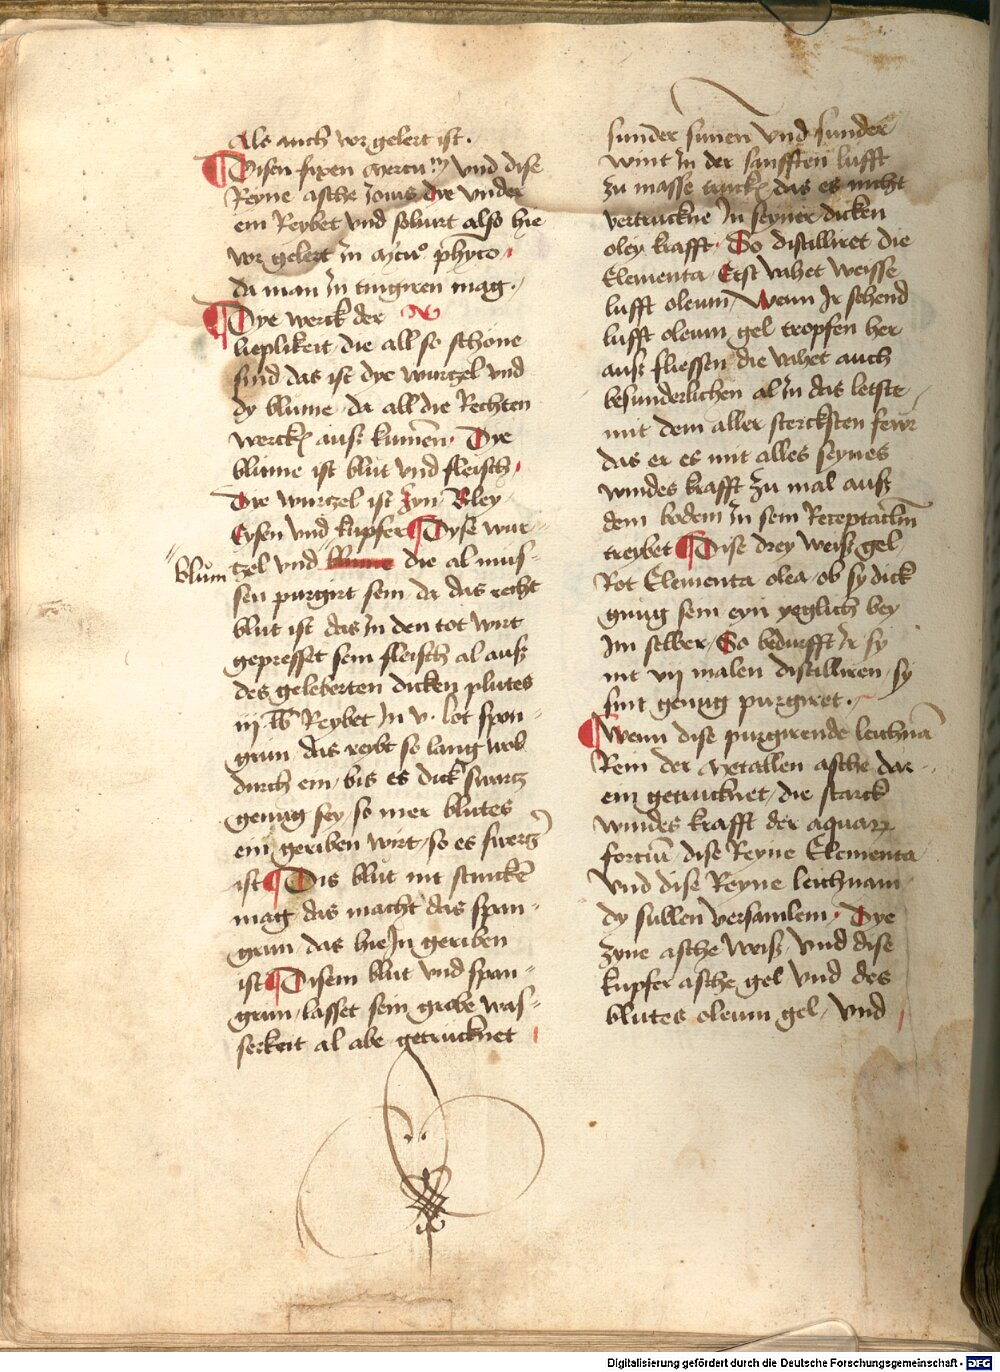 Als auch vor gelert ist.
Disen fixen mercu^rm vnd dise
Reyne asche Jouis dye vnder
ein Reybet vnd soluirt also hie
vor gelert in
da man in tingiren mag.
Dye werck der
lieplikeit die all so schone
sind das ist dye wurtzel vnd
dy blume da all die Rechten
werck auß kumen. Dye
blume ist blut vnd fleisch
Dye wurtzel ist Zyn Bley
Eysen vnd kupfer Dyse wur-
blum
tzel vnd blume die al mus-
sen purgirt sein da das recht
blut ist das in den tot wirt
gepresset sein fleisch al auß
des geleberten dicken plutes
iij lb Reybet in v. lot span-
grun das reibt so lang wol
durch ein bis es dick swartz
genug sey so mer blutes
ein geriben wirt so es swerer
ist Dis blut nit stincken
mag das macht das span-
grun das hie in geriben
ist Disem blut vnd span-
grun lasset sein grobe was-
serkeit al abe getrucknet
sunder sunen vnd sunder
wint in der sanfften lufft
zu masse truck das es nicht
vertruckne in seyner dicken
oley krafft. So distilliret die
Elementa Erst vahet weisse
lufft oleum Wenn Ir sehend
lufft oleum gel tropfen her
auß fliessen die vahet auch
besunderlichen al in das letste
mit dem aller stercksten feur
das er es mit alles seynes
windes krafft zu mal auß
dem bodem in sein Receptaclm
treybet Dise drey weiß gel
Rot Elementa olea ob sy dick
gnug sein eyn yeglich bey
Im selber So bedurfft Ir sy
nit vij malen distilliren sy
sint genug purgiret.
Wenn dise purgirende leichna
Rein der Metallen asche dar-
ein getrucknet die starck
windes krafft der aquarum
fortium dise Reyne Elementa
vnd dise Reyne leichnam
dy sullen versamlem. Dye
zyne asche weiß vnd dise
kupfer asche gel vnd des
blutes oleum gel vnd
Digitalisierung gefördert durch die Deutsche Forschungsgemeinschaft - DFG